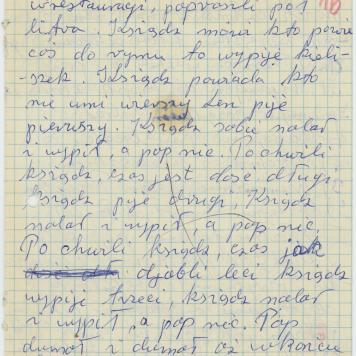 w restauracji, poprosili pół
litra. Ksiądz mówi kto powie
coś do rymu to wypije kieli-
-szek. Ksiądz powiada kto
nie umi wierszy ten pije
pierwszy. Ksiądz sobie nalał
i wypił, a pop nic. Po chwili
ksiądz, czas jest dość długi
ksiądz pije drugi, Ksiądz
nalał i wypił, a pop nic,
Po chwili ksiądz, czas jak
djabli leci ksiądz
wypije trzeci, ksiądz nalał
i wypił, a pop nic. Pop
dumał i dumał aż w końcu